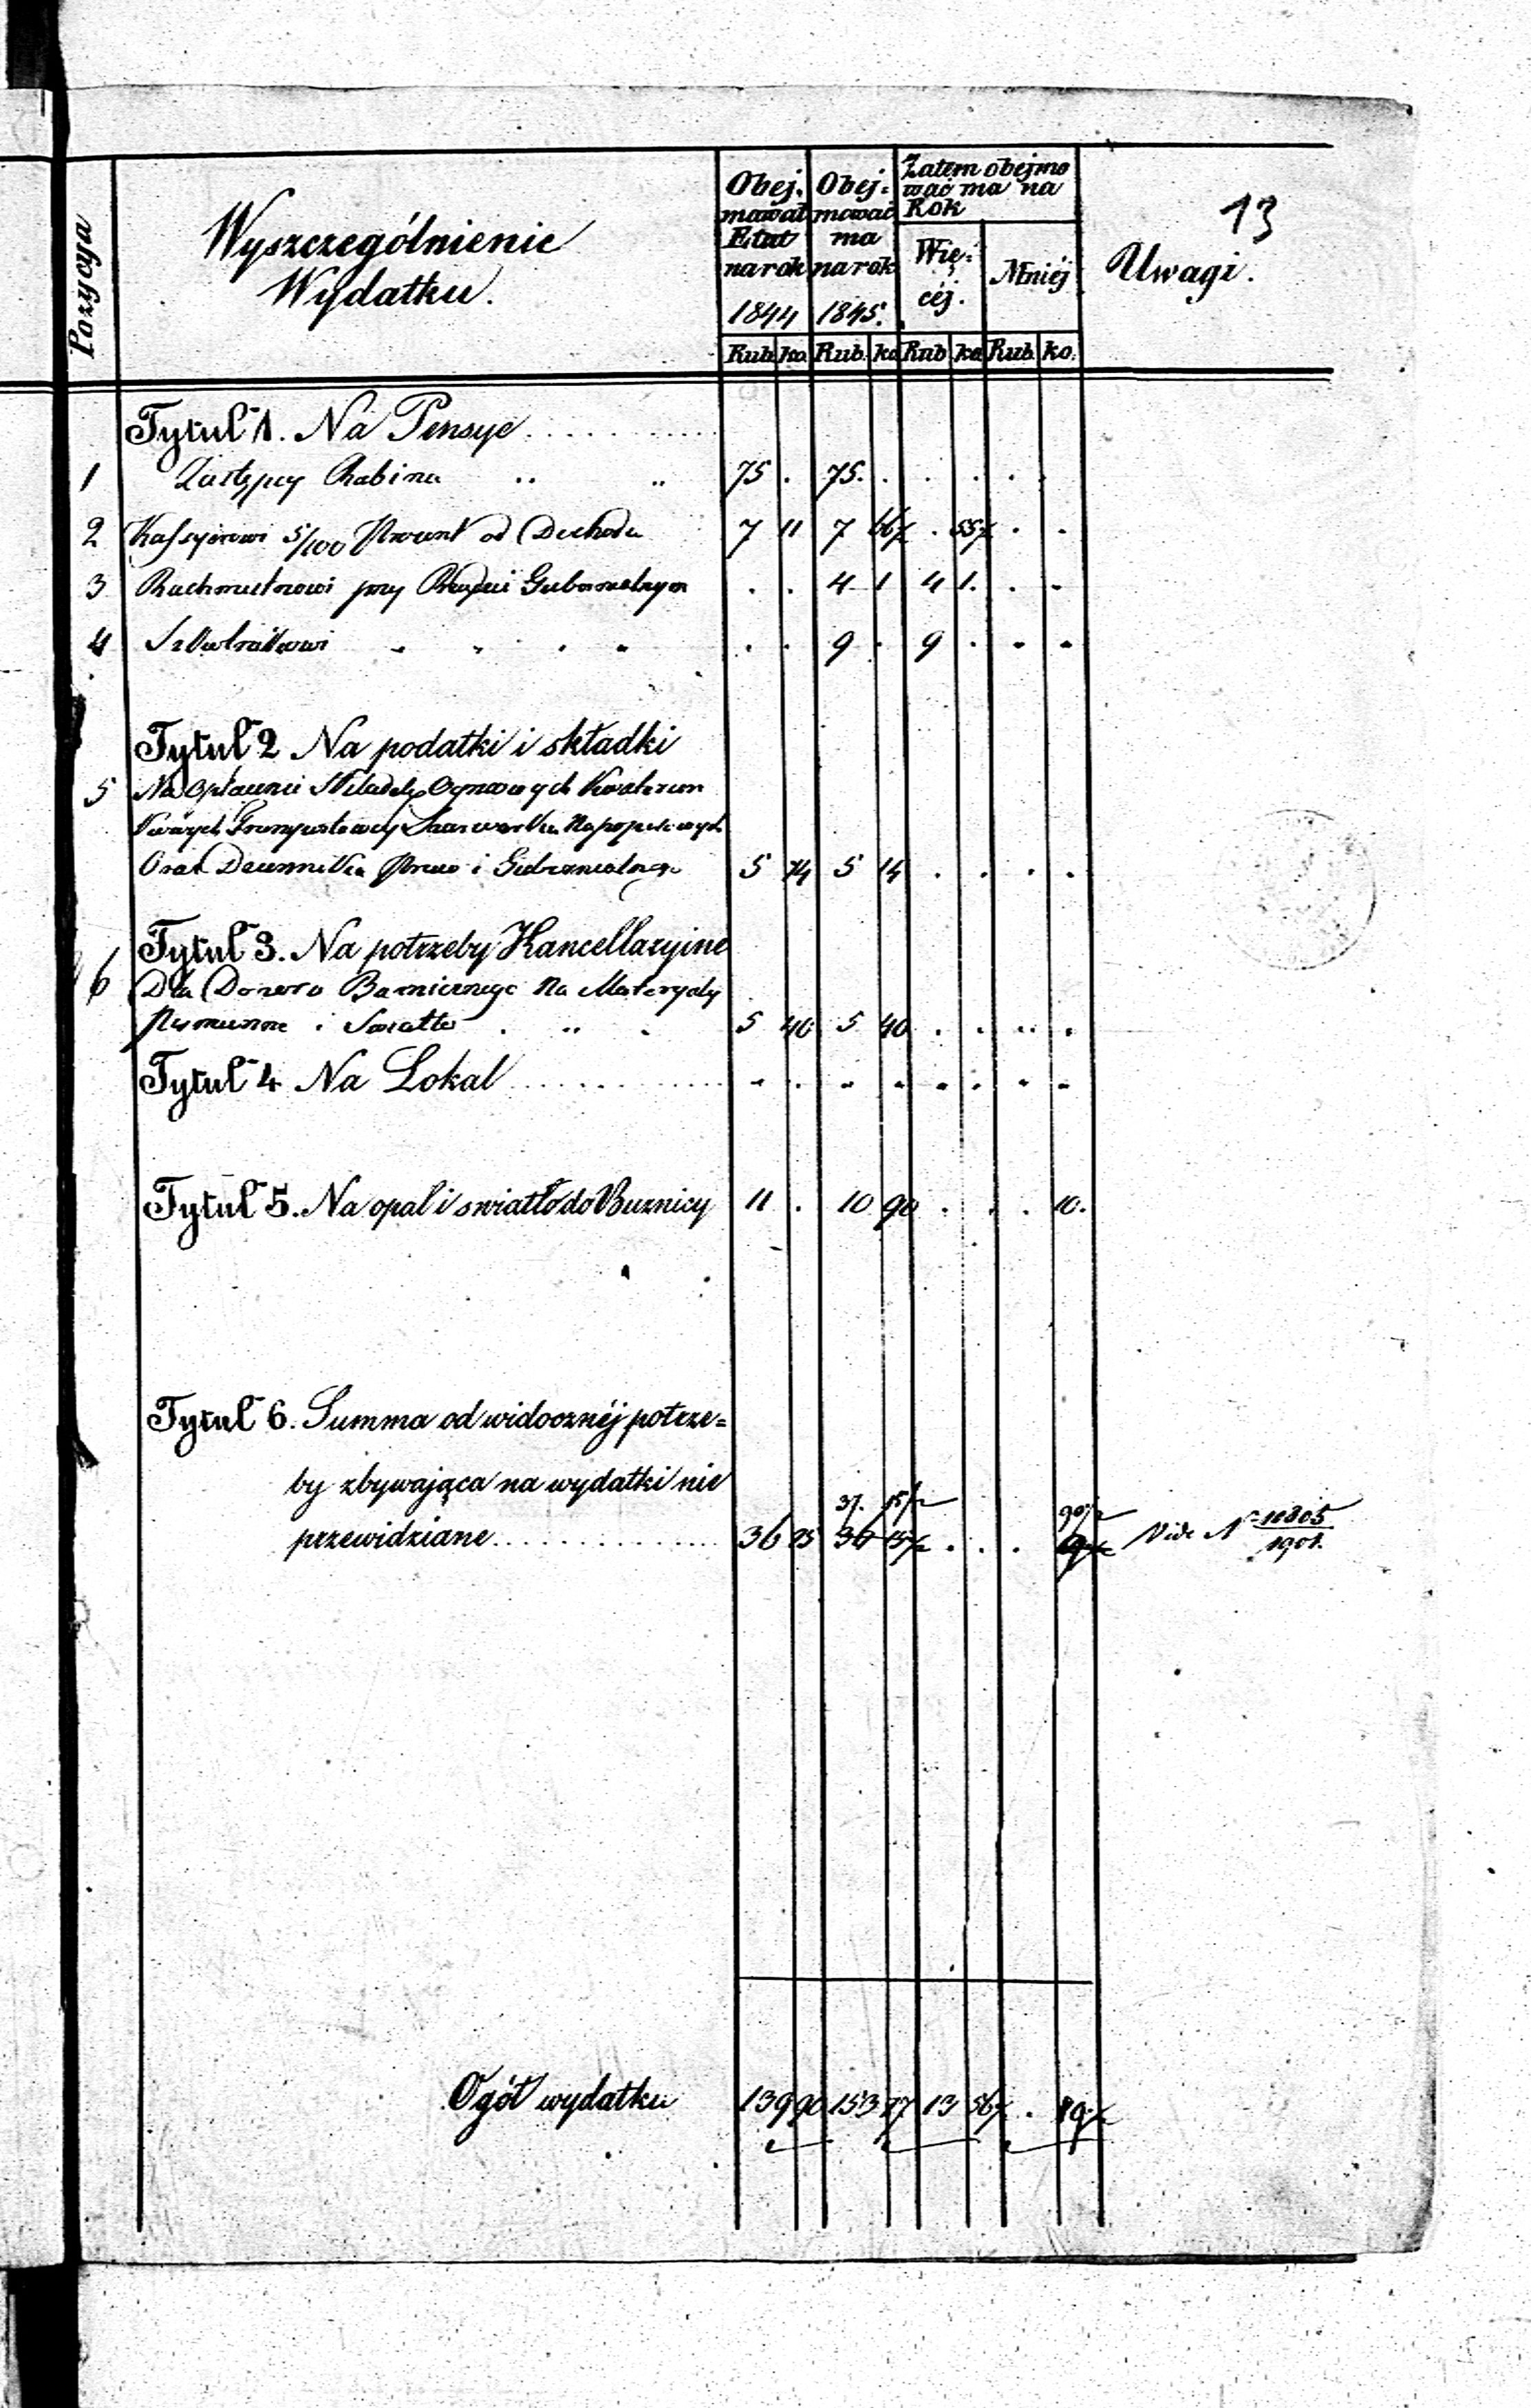 13
Pozycja
Wyszczególnienie
Wydatku.
Obej-
mował
Etat
na rok
1844
Obej-
mować
ma
na rok
1845.
Zatem obejmo
wać ma na
Rok
Wię-
céj.
Mniéj
Uwagi.
Rub. ko. Rub. ko Rub ko Rub. ko.
Tytuł 1. Na Pensye
1 Zastępcy Rabina 75 . 75. . . . . .
2 Kassyerowi 5/100 Procent od Dochodu 7 11 7 66½ . 55½ . .
3 przy Rządzie Gubernialnym . . 4 1 4 1. . .
4 Szkolnikowi . . 9 . 9 . . .
Tytuł 2 Na podatki i składki
5 Na Opłacenie Składek Ogniowych
Oraz Dziennika Praw i Gubernialnego 5 14 5 14 . . . .
Tytuł 3. Na potrzeby Kancellaryjne
6 Dla Dozoru Bożniczego Na Materyały
Piśmienne i Swiatło 5 40 5 40 . . . .
Tytuł 4 Na Lokal
Tytuł 5. Na opał i swiatło do Buznicy 11 . 10 90 . . . 10.
Tytuł 6. Summa od widocznéj potrze=
by zbywająca na wydatki nie
37. 15½ 90½
przewidziane 36 25 36 15½ . . . Vide N 10805/1901.
Ogół wydatku 139 90 153 27 13 56½ . 19½